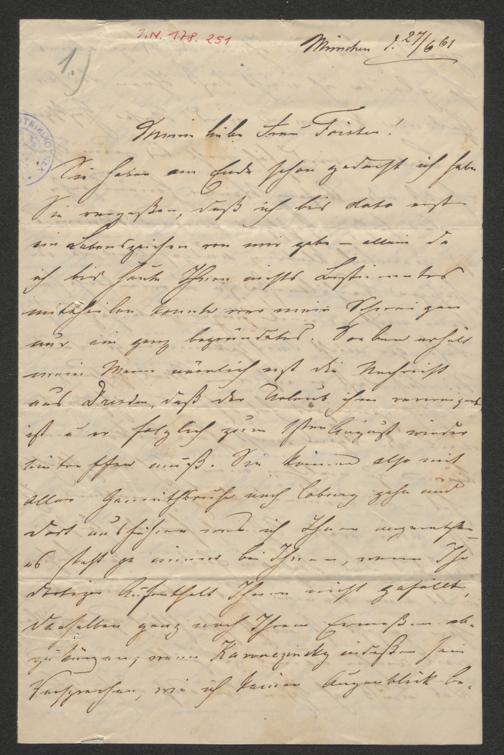 I.N. 178.251
München d. 27/6 61
1.)
Meine liebe Frau Forster!
Sie haben am Ende schon gedacht ich habe
Sie vergeßen, daß ich bis dato erst
ein Lebenszeichen von mir gebe – allein da
ich bis heute Ihnen nichts Bestimmtes
mittheilen konnte war mein Schweigen
nur ein ganz begründetes. Soeben erhält
mein Mann nämlich erst die Nachricht
aus Dresden, daß der Urlaub ihm
ist u er folglich zum 1sten August wieder
eintreffen muß. Sie können also mit
aller Gemüthsruhe nach Coburg gehn und
dort ausführen was ich Ihnen
es steht ja immer bei Ihnen, wenn Ihr
dortiger Aufenthalt Ihnen nicht gefällt,
denselben ganz nach Ihrem Ermeßen ab-
zukürzen; wenn indeßen sein
Versprechen, wie ich keinen Augenblick be-